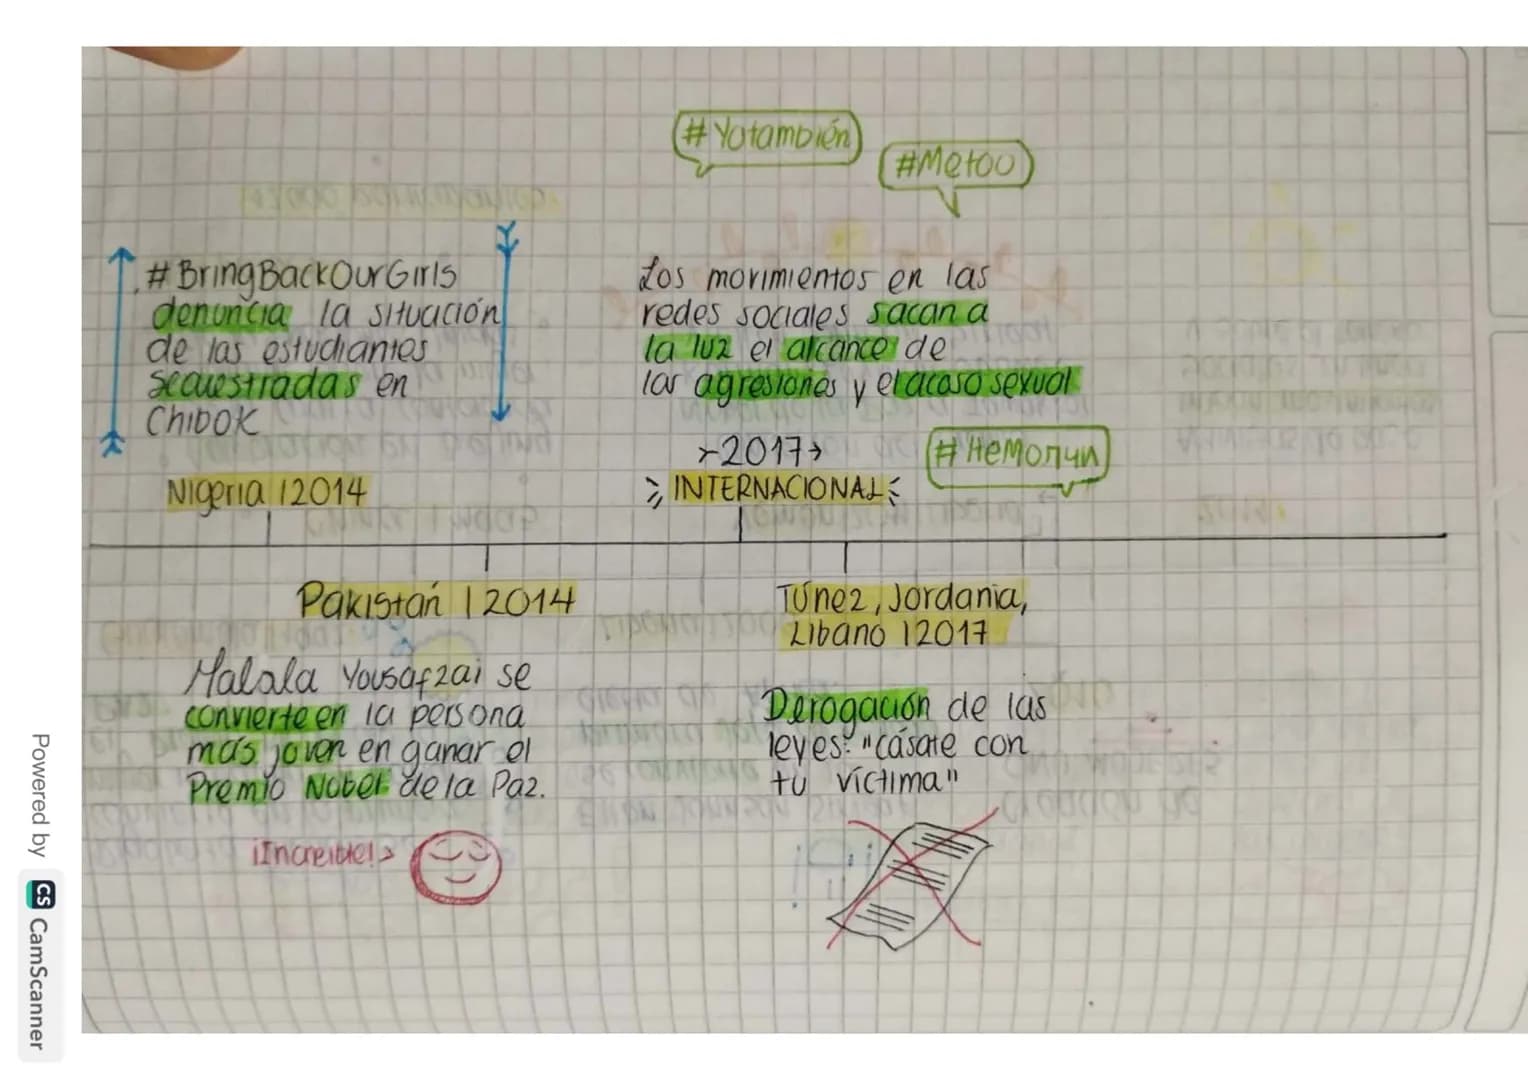 #Yotambién
#Metoo
#BringBackOurGirls
denuncia la situación
de las estudiantes
secuestradas en
Chibok
Nigeria | 2014
Los movimientos en las
redes sociales sacan a
la luz el alcance de
las agresiones y el acoso sexual
2017
INTERNACIONAL
#НеМолчи
Pakistán | 2014
Malala Yousafzai se
convierte en la persona
más joven en ganar el
Premio Nobel de la Paz.
¡Increíble!
Túnez, Jordania,
Líbano | 2017
Derogación de las
leyes: "cásate con
tu víctima"
Powered by CS CamScanner